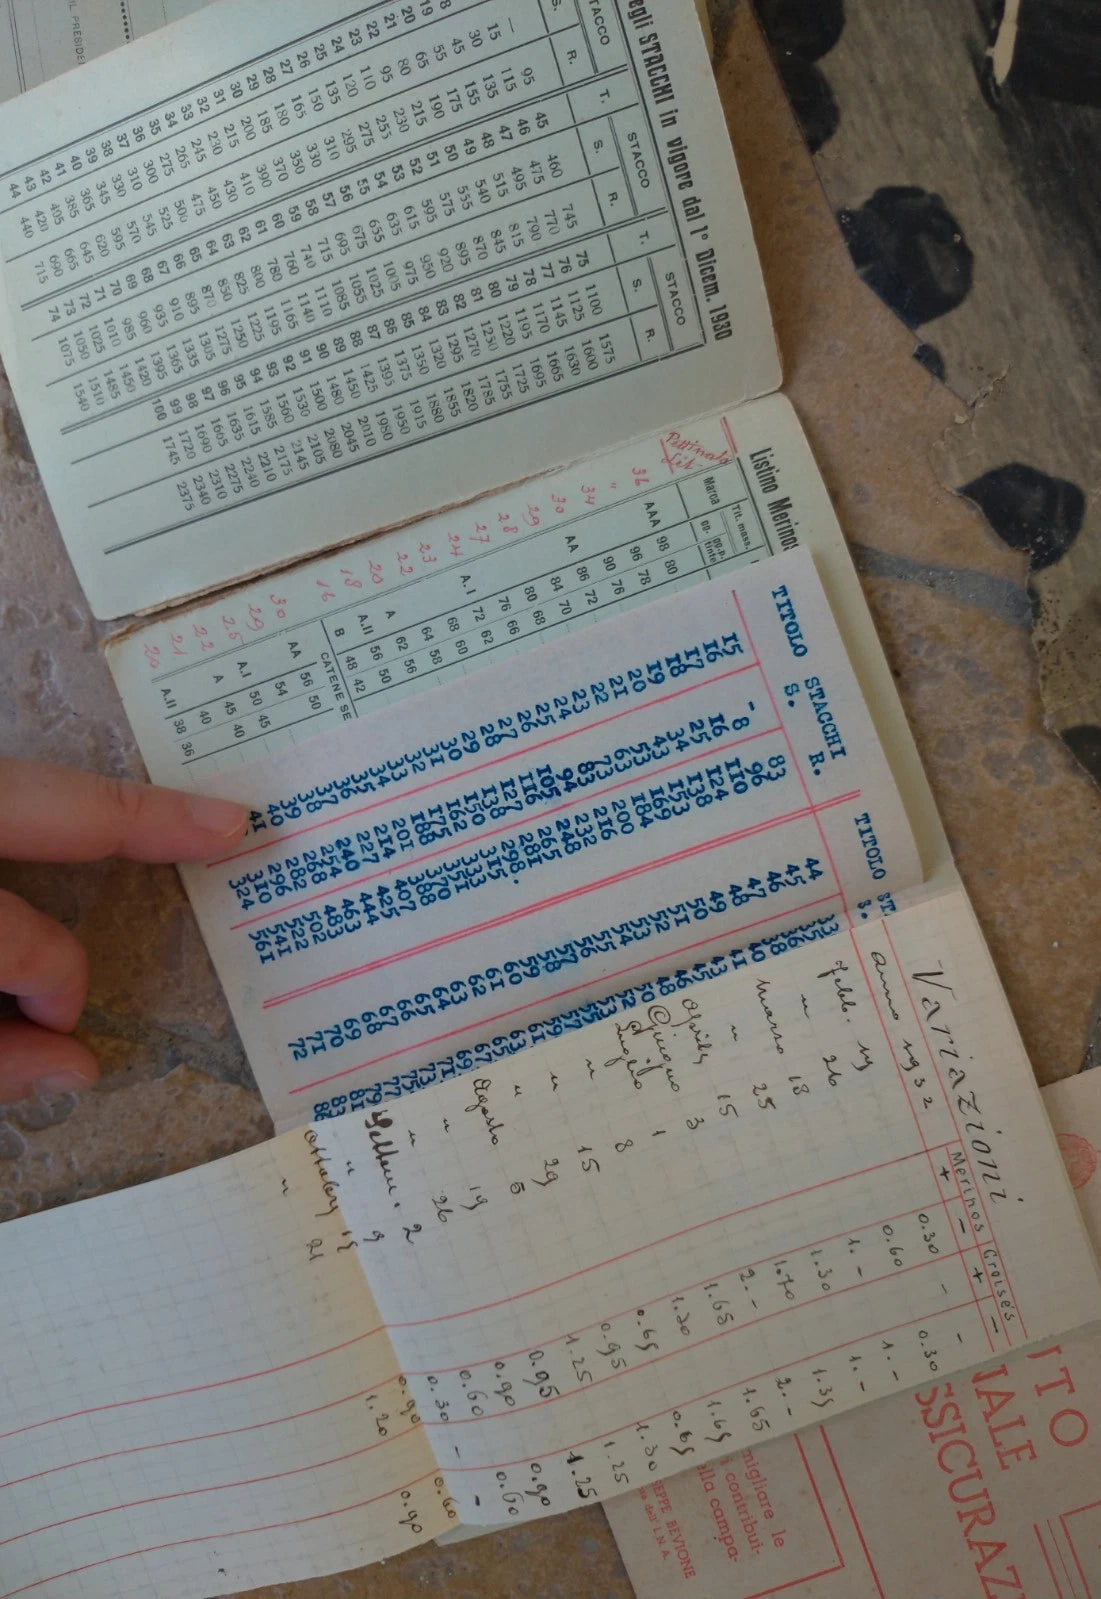 IL PRESIDE
egli STACCHI in vigore dal 1° Dicem. 1930
STACCO T. STACCO T. STACCO
S. R. S. R. S. R.
— 95 45 460 745 75 1100 1575
15 115 46 475 770 76 1125 1600
30 135 47 495 790 77 1145 1630
8 45 155 48 515 815 78 1170 1665
19 55 175 49 540 845 79 1195 1695
20 65 190 50 555 870 80 1220 1725
21 80 215 51 575 895 81 1250 1755
22 95 230 52 595 920 82 1270 1785
23 110 255 53 615 950 83 1295 1820
24 120 275 54 635 975 84 1320 1855
25 135 295 55 655 1005 85 1350 1880
26 150 310 56 675 1025 86 1375 1915
27 165 330 57 695 1055 87 1395 1950
28 180 350 58 715 1085 88 1425 1980
29 185 370 59 740 1110 89 1450 2010
30 200 390 60 760 1140 90 1480 2045
31 215 410 61 780 1165 91 1500 2080
32 230 430 62 800 1195 92 1530 2105
33 245 450 63 825 1225 93 1560 2145
34 265 475 64 850 1250 94 1585 2175
35 275 500 65 870 1275 95 1615 2210
36 300 525 66 895 1305 96 1635 2240
37 310 545 67 910 1335 97 1665 2275
38 330 570 68 935 1365 98 1690 2310
39 345 595 69 960 1395 99 1720 2340
40 365 620 70 985 1420 100 1745 2375
41 385 645 71 1010 1450
42 405 665 72 1025 1485
43 420 690 73 1050 1510
44 440 715 74 1075 1540
Listino Merinos
Pettinato Marca Tit. mass.
Lit. gg. gg.p. tinte
36 AAA 98 80
" 96 78
34 90 76
30 AA 86 72
29 84 70
28 80 68
27 76 66
24 A.I 72 62
23 68 60
22 64 58
20 A 62 56
18 A.II 56 50
16 B 48 42
CATENE SE
30 AA 56 50
29 54
25 A.I 50 45
22 A 45 40
21 40
20 A.II 38 36
TITOLO STACCHI TITOLO ST
S. R. S.
15 - 83 44 33
16 8 96 45 35
17 16 110 46 36
18 25 124 47 38
19 34 138 48 40
20 43 153 49 41
21 53 169 50 43
22 63 184 51 45
23 73 200 52 46
24 83 216 53 48
25 94 232 54 50
26 105 248 55 52
27 116 265 56 53
28 127 281 57 55
29 138 298. 58 57
30 150 315 59 59
31 162 333 60 61
32 175 351 61 63
33 188 370 62 65
34 201 388 63 67
35 214 407 64 69
36 227 425 65 71
37 240 444 66 73
38 254 463 67 75
39 268 483 68 77
40 282 502 69 79
41 296 522 70 81
310 541 71 83
324 561 72 86
Variazioni
anno 1932 Merinos Croisés
+ - + -
Febb. 19 0.30 - -
" 26 0.60 0.30
Marzo 18 1.- 1.-
" 25 1.30 1.-
Aprile 15 1.70 1.35
Giugno 3 2.- 2.-
Luglio 1 1.65 1.65
" 8 1.30 1.65
" 15 0.65 0.65
" 29 0.95 1.30
Agosto 5 1.25 1.25
" 19 0.95 1.25
" 26 0.90 0.90
Settem. 2 0.60 0.60
" 9 0.30 - -
Ottobre 19 0.90 0.60
" 21 1.20 0.90
ITO
NALE
SSICURAZ
migliare le
i contribui-
ella campa-
SEPPE BEVIONE
dell'I.N.A.